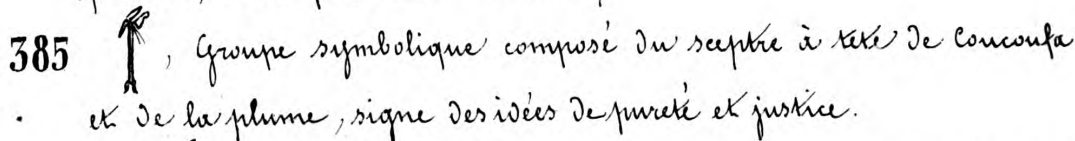 385 , Groupe symbolique composé du sceptre à tête de Coucoufa
et de la plume, signe des idées de pureté et justice.